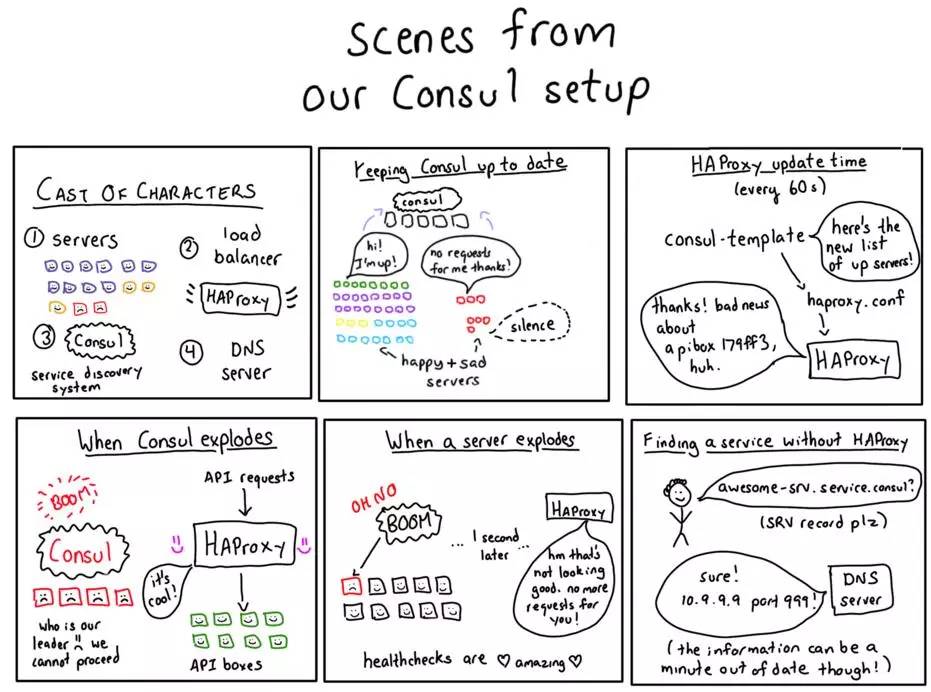 Scenes from
our Consul setup
CAST OF CHARACTERS
① servers
② load
balancer
HAProxy
③ Consul
service discovery
system
④ DNS
server
Keeping Consul up to date
consul
hi!
I'm up!
no requests
for me thanks!
silence
happy + sad
servers
HAProxy update time
(every 60s)
consul-template
here's the
new list
of up servers!
haproxy.conf
thanks! bad news
about
apibox 179ff3,
huh.
HAProxy
When Consul explodes
BOOM
Consul
who is our
leader we
cannot proceed
API requests
HAProxy
it's
cool!
API boxes
When a server explodes
OH NO
BOOM
... 1 second
later ...
HAProxy
hm that's
not looking
good. no more
requests for
you!
healthchecks are ♡ amazing ♡
Finding a service without HAProxy
awesome-srv.service.consul?
(SRV record plz)
sure!
10.9.9.9 port 999!
DNS
server
(the information can be a
minute out of date though!)